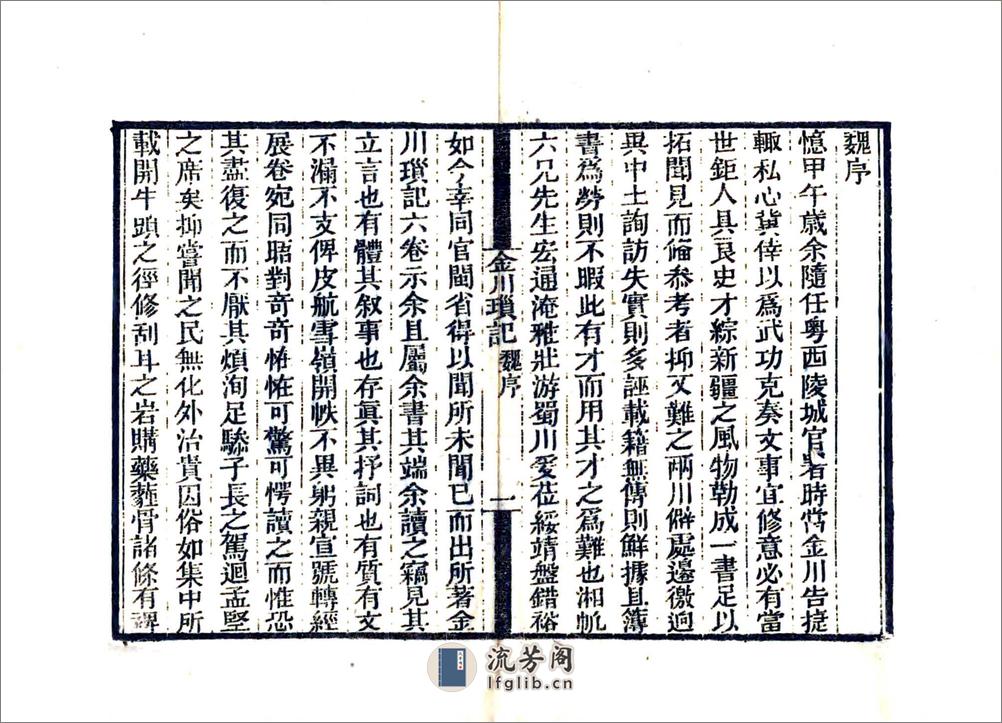 魏序
憶甲午歲余隨任粵西陵城官署時當金川告捷
輙私心冀倖以爲武功克奏文事宜修意必有當
世鉅人具良史才綜新疆之風物勒成一書足以
拓聞見而備參考者抑又難之兩川僻處邊徼逈
異中土詢訪失實則多誣載籍無傳則鮮據且簿
書爲勞則不暇此有才而用其才之爲難也湘帆
六兄先生宏通淹雅壯游蜀川爰莅綏靖盤錯裕
金川瑣記
魏序
一
如今幸同官閩省得以聞所未聞已而出所著金
川瑣記六卷示余且屬余書其端余讀之竊見其
立言也有體其叙事也存眞其抒詞也有質有文
不漏不支俾皮航雪嶺開帙不異躬親宣號轉經
展卷宛同晤對奇奇恠恠可驚可愕讀之而惟恐
其盡復之而不厭其煩洵足驂子長之駕迴孟堅
之席矣抑嘗聞之民無化外治貴因俗如集中所
載開牛頭之徑修刮耳之岩購藥薶骨諸條有禆
流芳阁
lfglib.cn